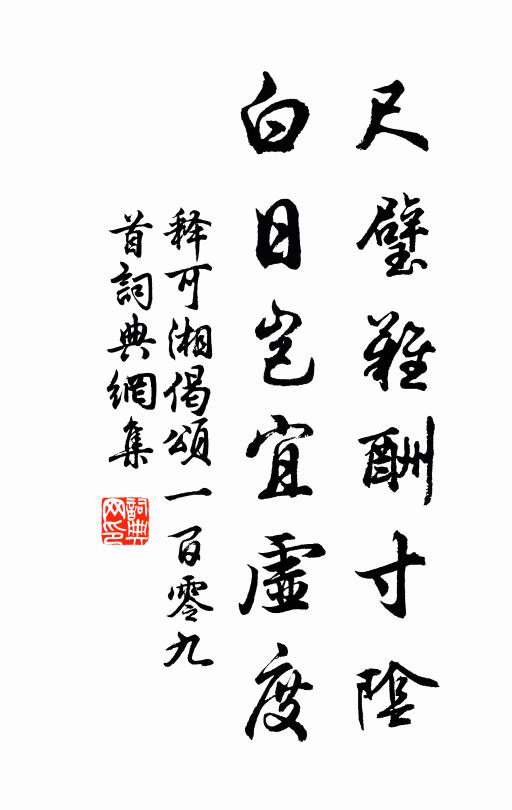 尺璧難酬寸陰
白日岂宜虛度
释可湘偈頌一百零九
首詞典網集
詞典
网印